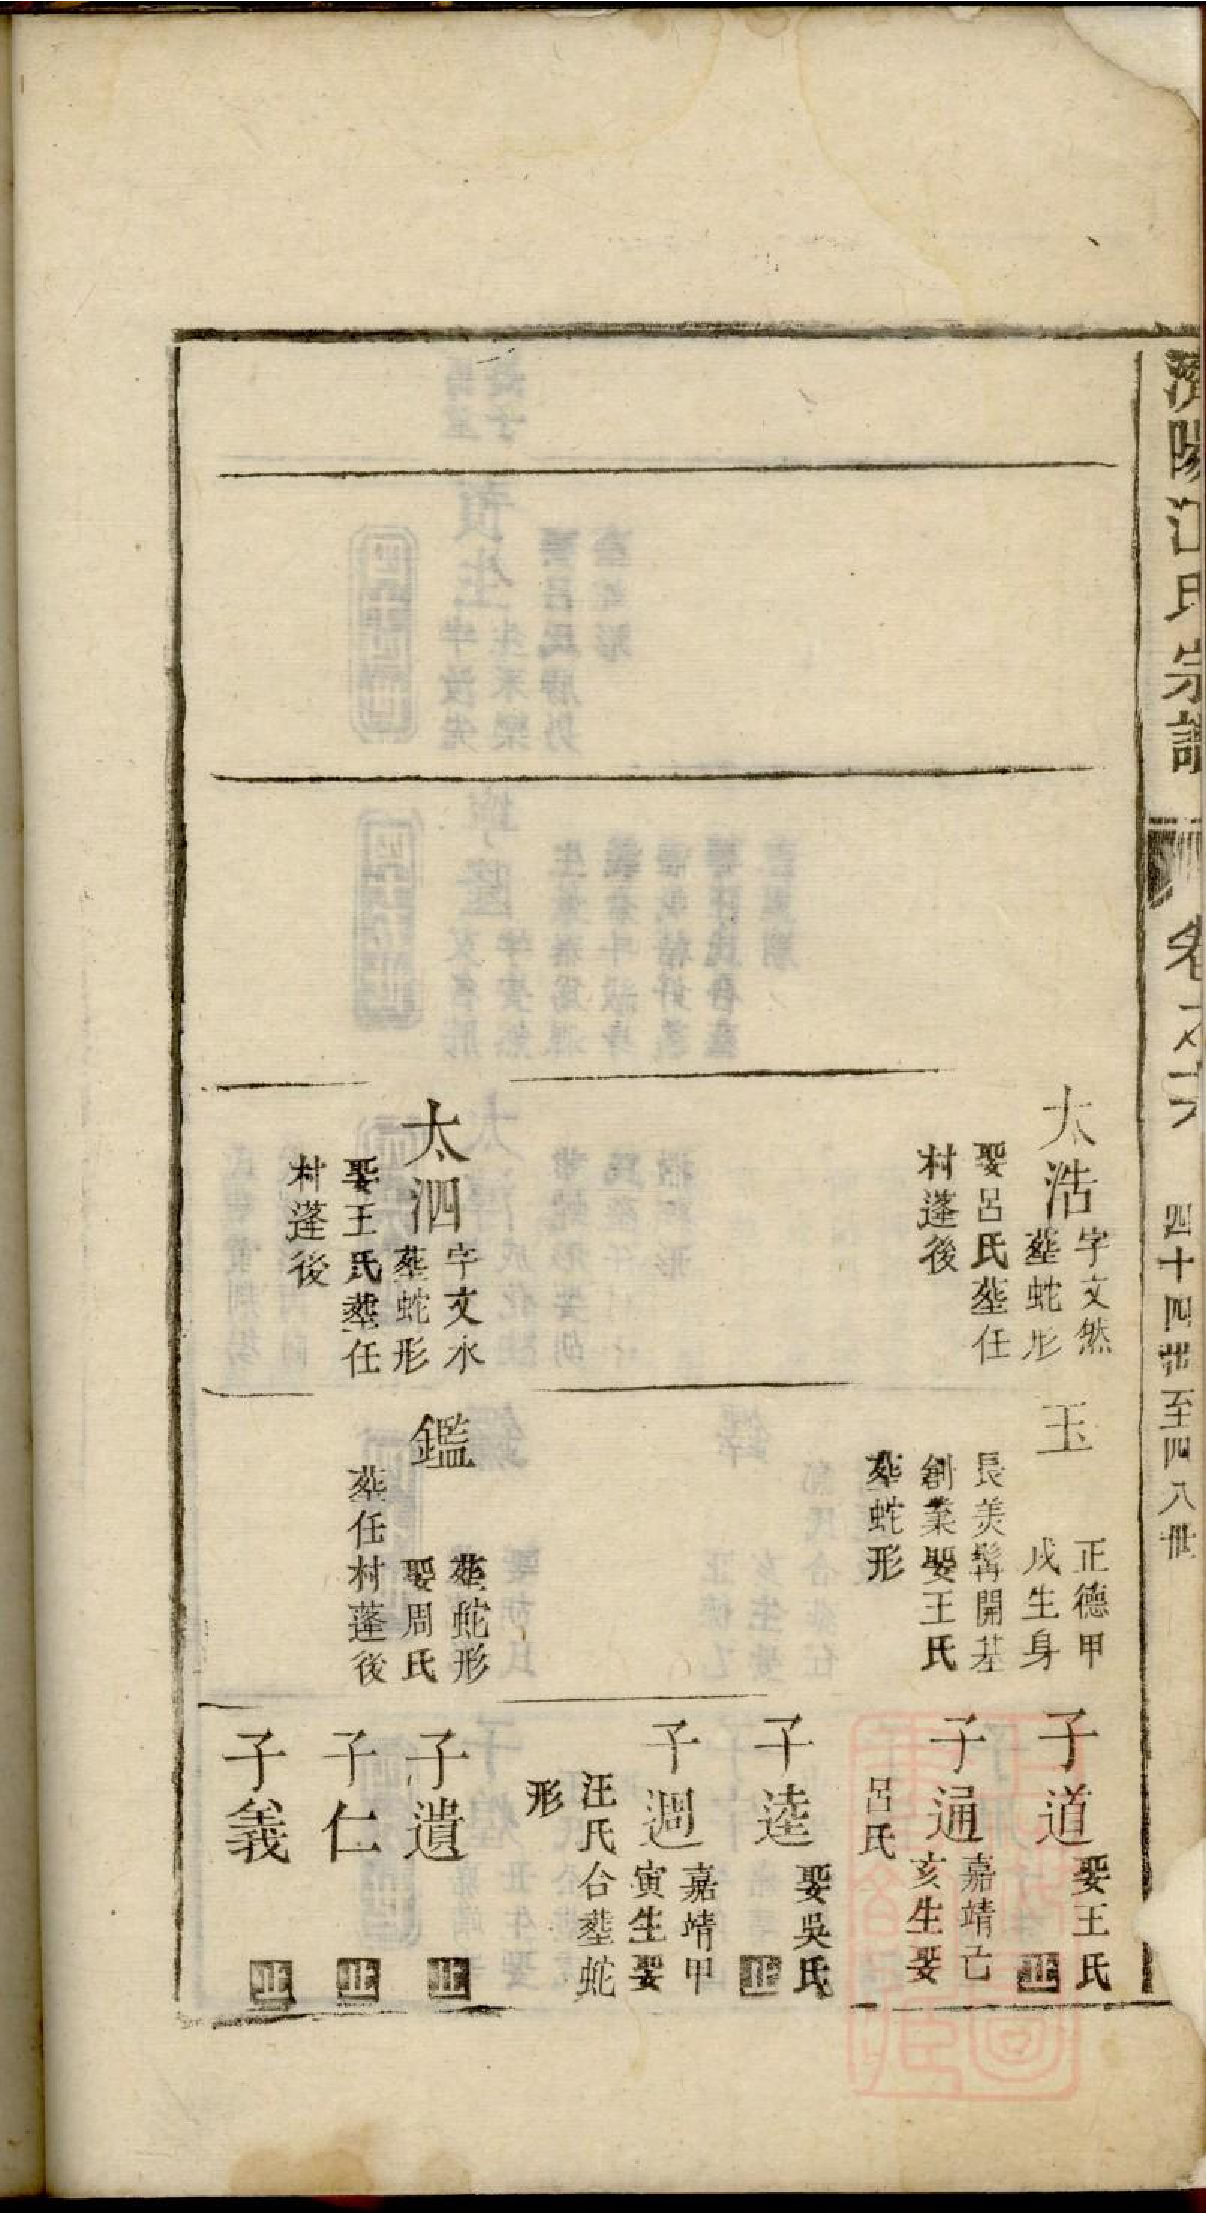 濟陽江氏宗譜
卷之六
四十四世至四八世
太浩
字文然
葬蛇形
娶呂氏葬任
村蓬後
太泗
字文水
葬蛇形
娶王氏葬任
村蓬後
玉
正德甲
戌生身
長美髯開基
創業娶王氏
葬蛇形
鑑
葬蛇形
娶周氏
葬任村蓬後
子道
娶王氏
止
子通
嘉靖己
亥生娶
呂氏
子逵
娶吳氏
止
子週
嘉靖甲
寅生娶
汪氏合葬蛇
形
子遺
止
子仁
止
子義
止